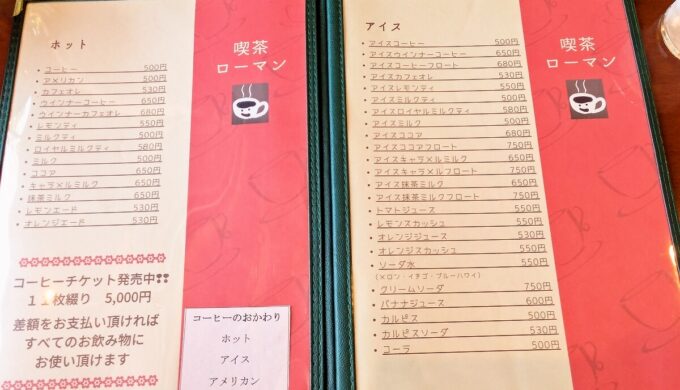 ホット
喫茶
ローマン
・コーヒー 500円
・アメリカン 500円
・カフェオレ 530円
・ウインナーコーヒー 650円
・ウインナーカフェオレ 680円
・レモンティ 550円
・ミルクティ 500円
・ロイヤルミルクティ 580円
・ミルク 500円
・ココア 650円
・キャラメルミルク 650円
・抹茶ミルク 650円
・レモンエード 530円
・オレンジエード 530円
コーヒーチケット発売中❢❢
１１枚綴り 5,000円
差額をお支払い頂ければ
すべてのお飲み物に
お使い頂けます
コーヒーのおかわり
ホット
アイス
アメリカン
アイス
喫茶
ローマン
・アイスコーヒー 500円
・アイスウインナーコーヒー 650円
・アイスコーヒーフロート 680円
・アイスカフェオレ 530円
・アイスレモンティ 550円
・アイスミルクティ 500円
・アイスロイヤルミルクティ 580円
・アイスミルク 500円
・アイスココア 680円
・アイスココアフロート 750円
・アイスキャラメルミルク 650円
・アイスキャラメルフロート 750円
・アイス抹茶ミルク 650円
・アイス抹茶ミルクフロート 750円
・トマトジュース 550円
・レモンスカッシュ 550円
・オレンジジュース 530円
・オレンジスカッシュ 550円
・ソーダ水 550円
(メロン・イチゴ・ブルーハワイ)
・クリームソーダ 750円
・バナナジュース 600円
・カルピス 500円
・カルピスソーダ 530円
・コーラ 500円